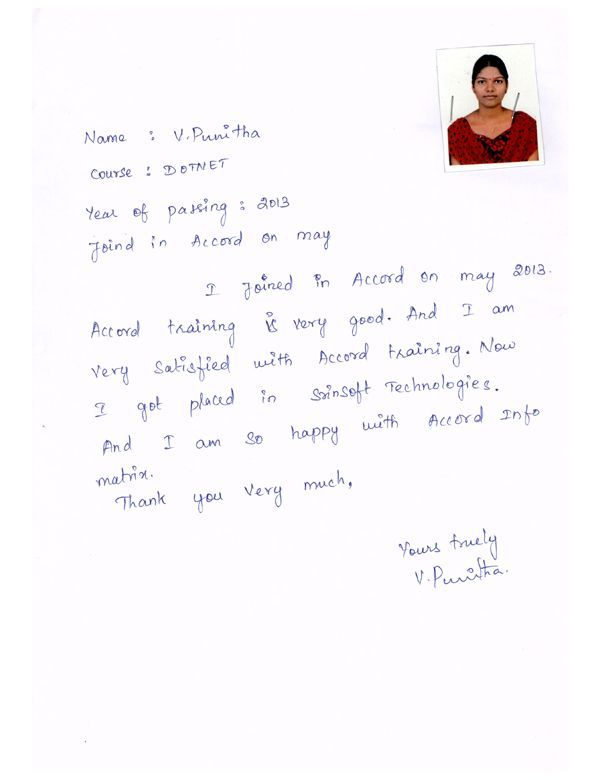 Name : V.Punitha
Course : DOTNET
Year of passing : 2013
Joind in Accord on may
I Joined in Accord on may 2013.
Accord training is very good. And I am
very satisfied with Accord training. Now
I got placed in SrinSoft Technologies.
And I am so happy with Accord Info
matrix.
Thank you very much,
Yours truely
V.Punitha.